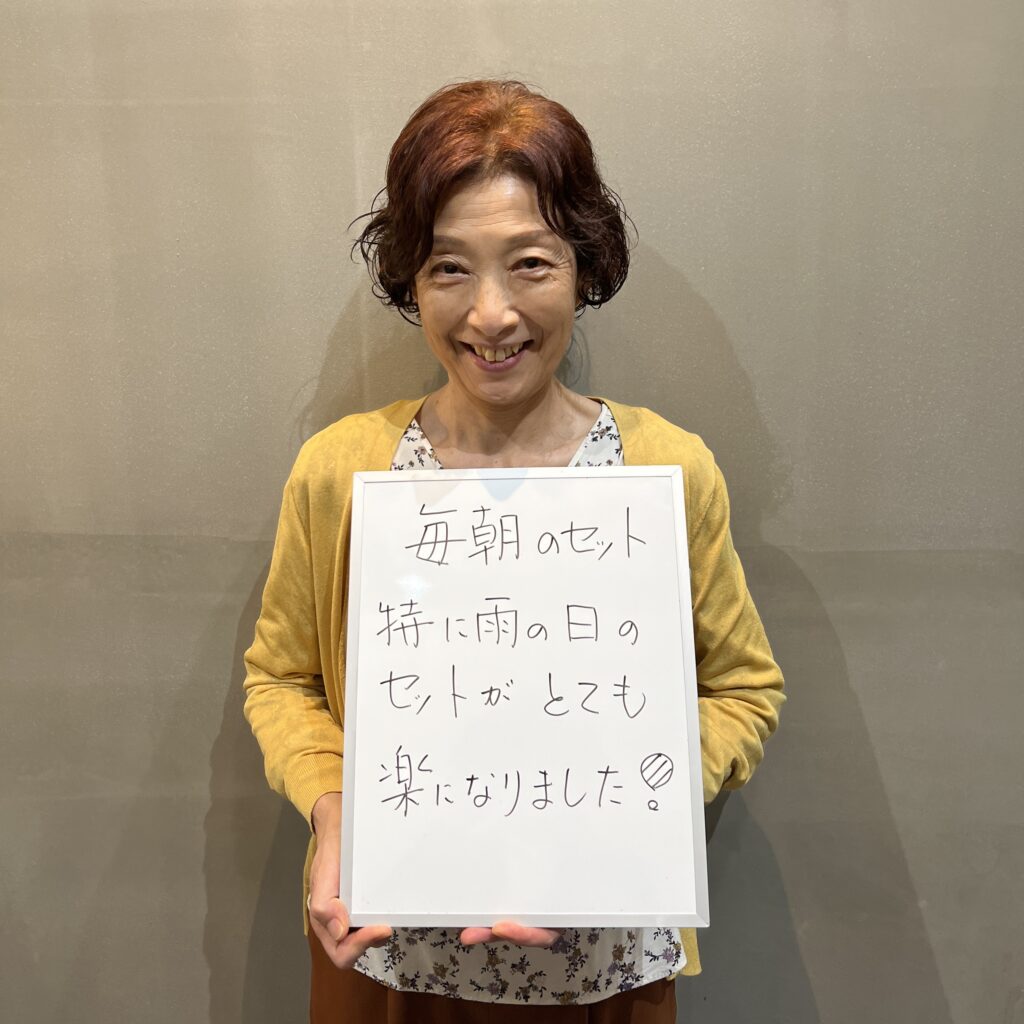 毎朝のセット
特に雨の日の
セットがとても
楽になりました!